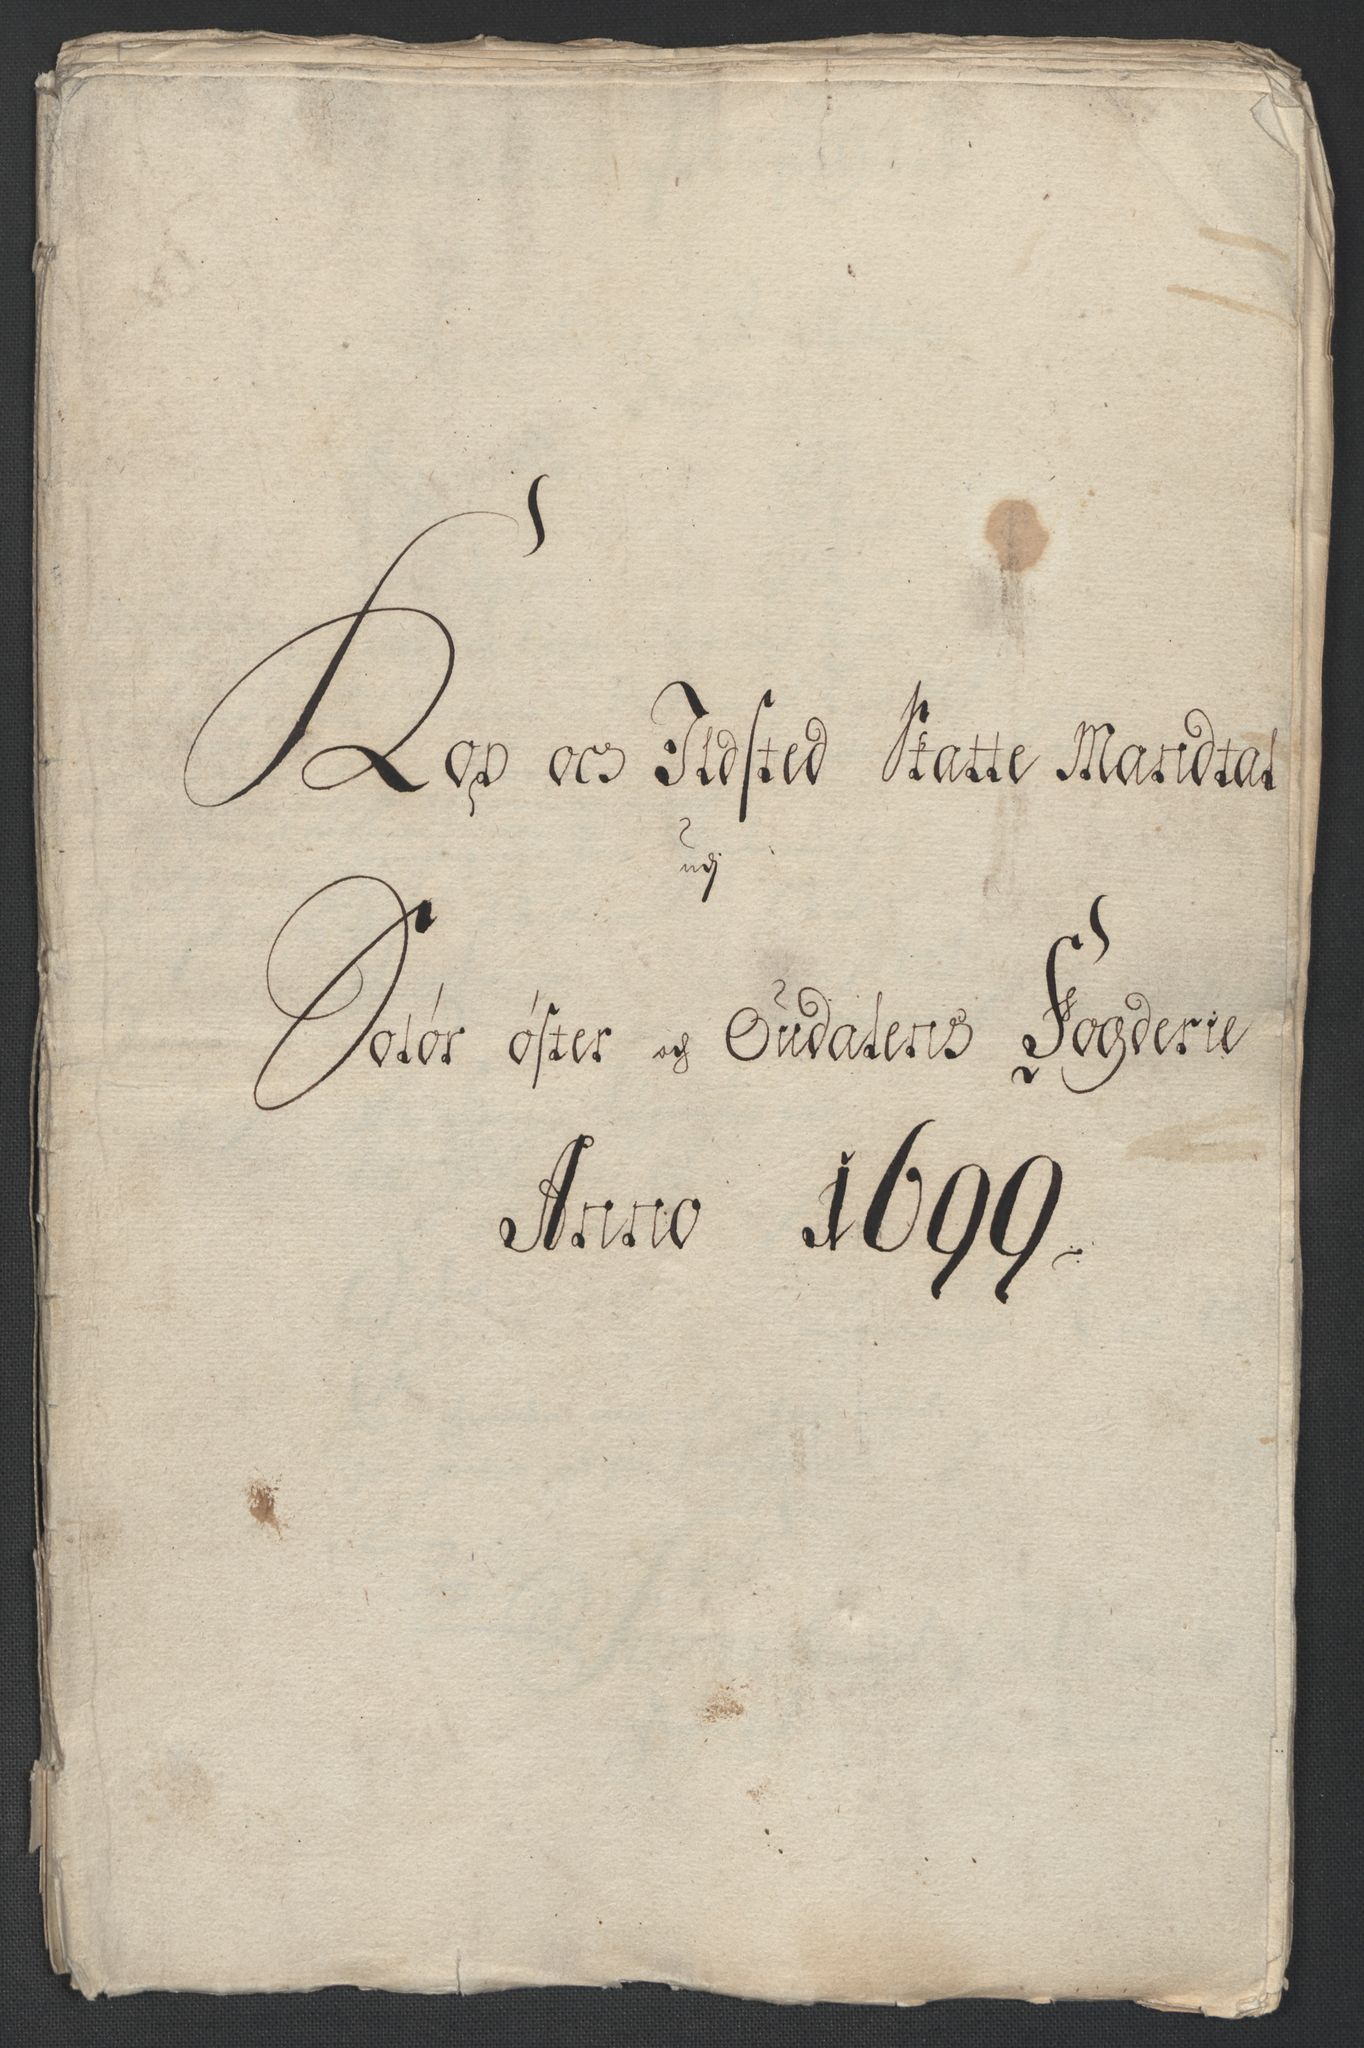 Kop och Ildsted Skatte Mandtal
udj
Solør øster og Oudalens Fogderie
Anno 1699.